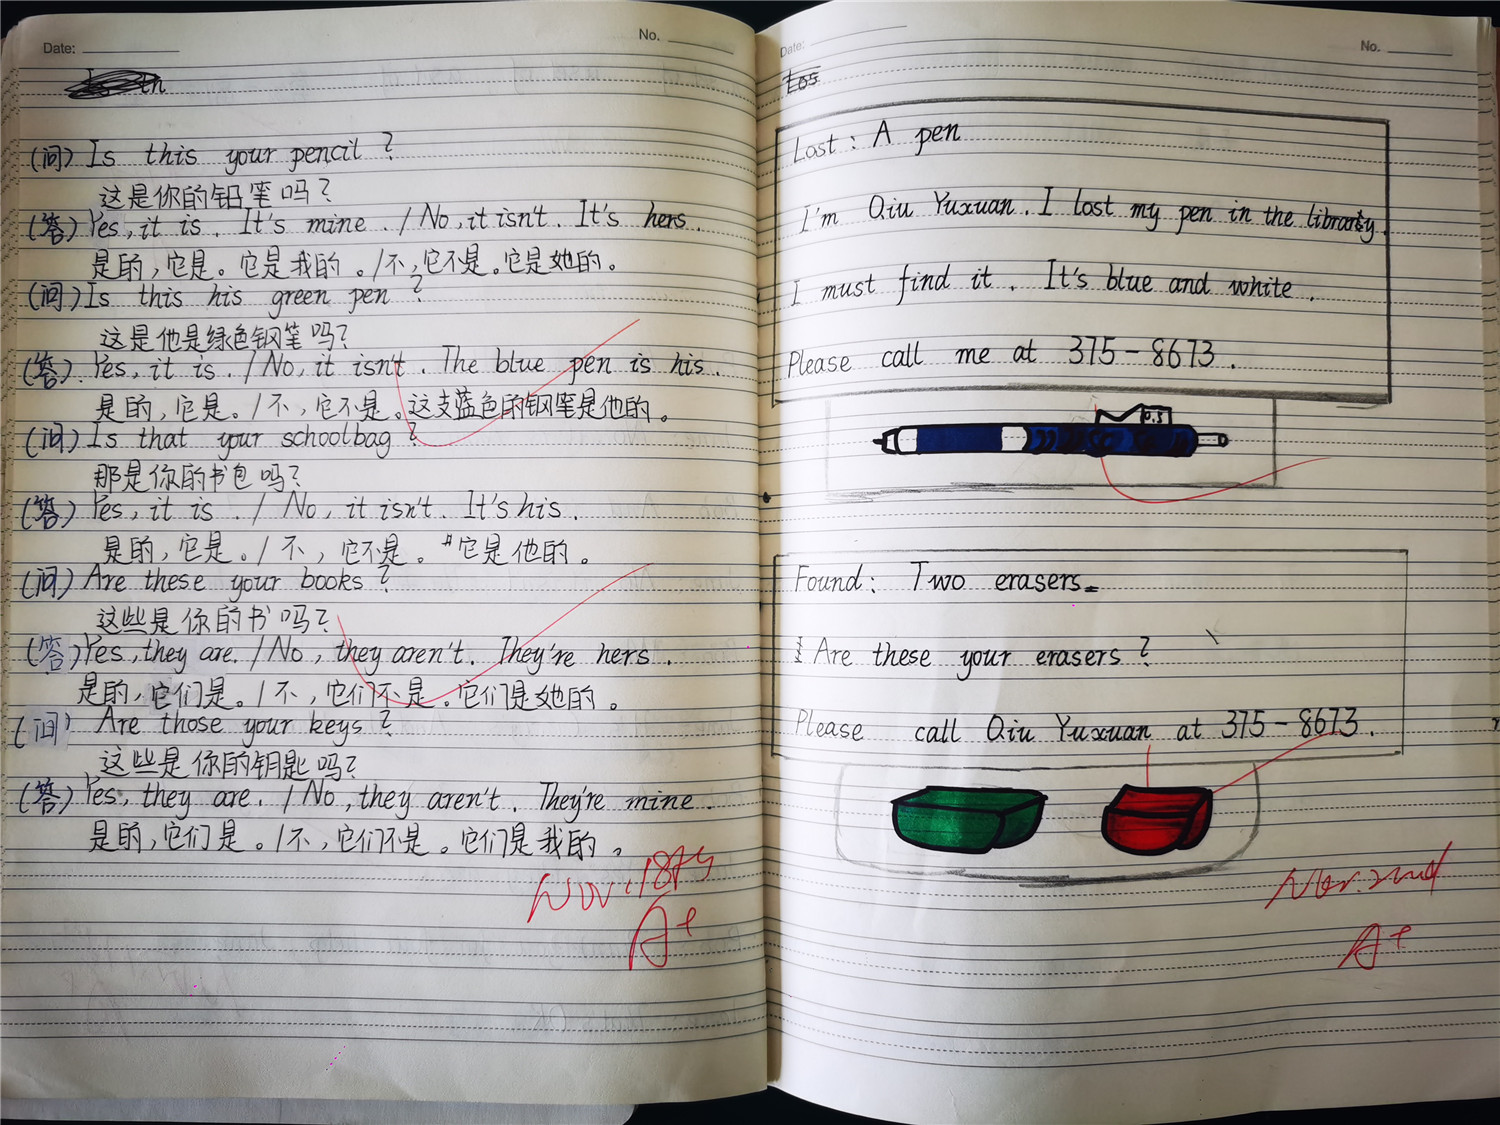 Date:
No.
(问) Is this your pencil ?
这是你的铅笔吗?
(答) Yes, it is . It's mine . / No, it isn't . It's hers .
是的,它是。它是我的。/不,它不是。它是她的。
(问) Is this his green pen ?
这是他是绿色钢笔吗?
(答) Yes, it is . / No, it isn't . The blue pen is his .
是的,它是。/不,它不是。这支蓝色的钢笔是他的。
(问) Is that your schoolbag ?
那是你的书包吗?
(答) Yes, it is . / No, it isn't. It's his .
是的,它是。/不,它不是。它是他的。
(问) Are these your books ?
这些是你的书吗?
(答) Yes, they are. / No, they aren't. They're hers .
是的,它们是。/不,它们不是。它们是她的。
(问) Are those your keys ?
这些是你的钥匙吗?
(答) Yes, they are. / No, they aren't. They're mine .
是的,它们是。/不,它们不是。它们是我的。
A+
Date:
No.
Lost : A pen
I'm Qiu Yuxuan . I lost my pen in the library .
I must find it . It's blue and white .
Please call me at 375-8673 .
0.5
Found : Two erasers.
Are these your erasers ?
Please call Qiu Yuxuan at 375-8673 .
A+